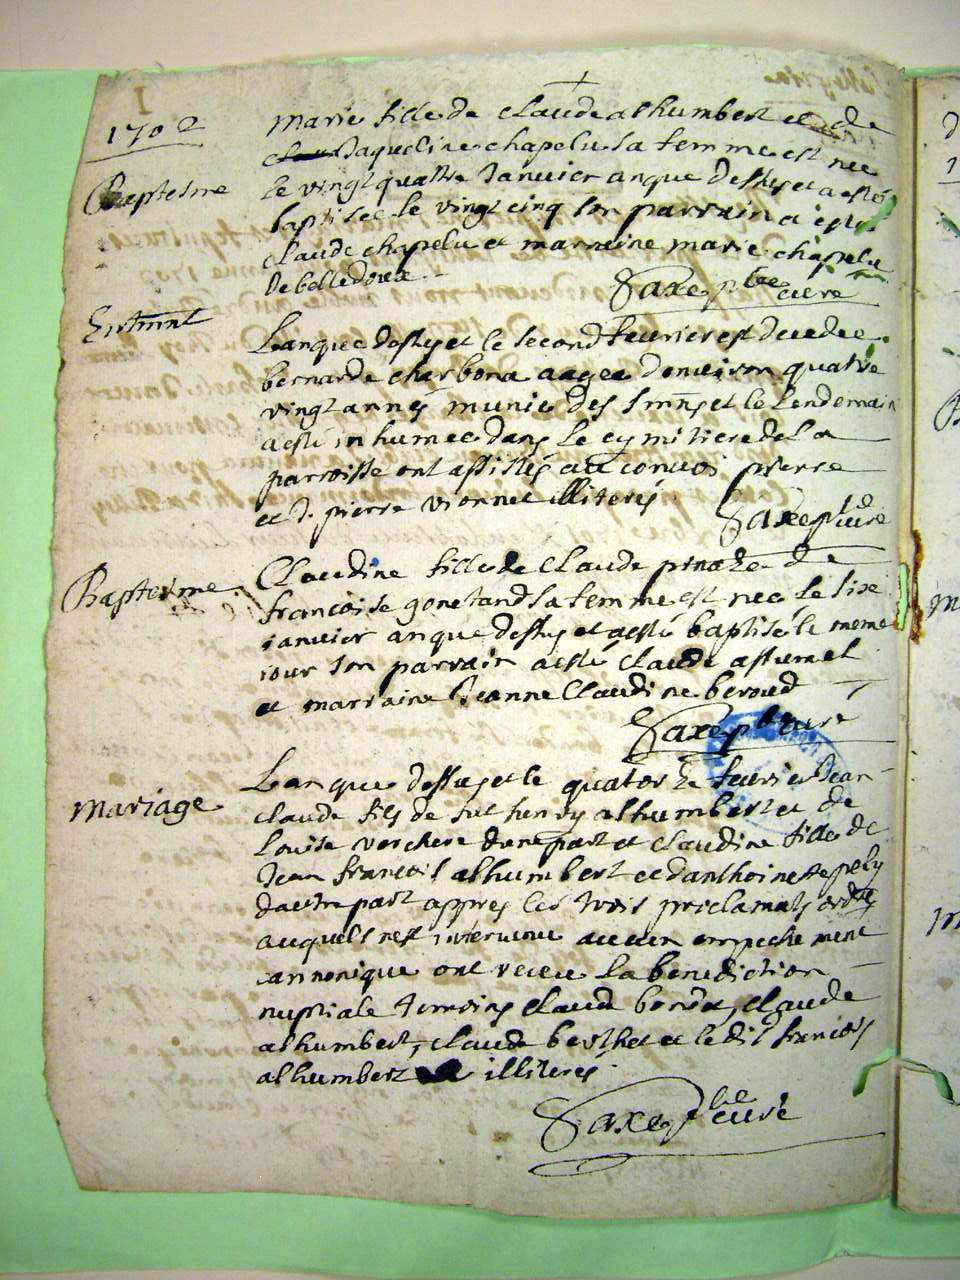 1
1702
marie fille de claude alhumbert et de
Jaqueline chapelu sa femme est nee
Baptesme
le vingtquattre Janvier an que dessus et a esté
baptisee le vingt cinq son parrain a esté
claude chapelu et marraine marie chapelu
de belledoux
Saxe pbre curé
Entmnt
L'an que dessus et le second feuvrier est decedee
bernarde charbona aagee d'enuiron quatre
vingt annes munie des Smns et le Lendemain
a esté inhumee dans le cymitiere de la
parroisse ont assistés au convoi pierre
et J. pierre vionnet illiterés
Saxe pb curé
Baptesme
Claudine fille de Claude pinaz de
francoise gonetand sa femme est nee le sixe
janvier an que dessus et a esté baptisé le meme
iour son parrain a esté claude assumel
et marraine Jeanne Claudine beroud
Saxe pb curé
Mariage
L'an que dessus et le quatorze feuvrier Jean
claude fils de fut henry alhumbert et de
Louise verchere d'une part et claudine fille de
Jean francois alhumbert et d'anthoinette pely
d'autre part appres les trois proclamats ordres
auquels n'est intervenu aucun empechement
cannonique ont receu la benediction
nuptiale temoins claude bonda, claude
alhumbert, claude berthet et le dit francois
alhumbert illiterés
Saxe pbre curé